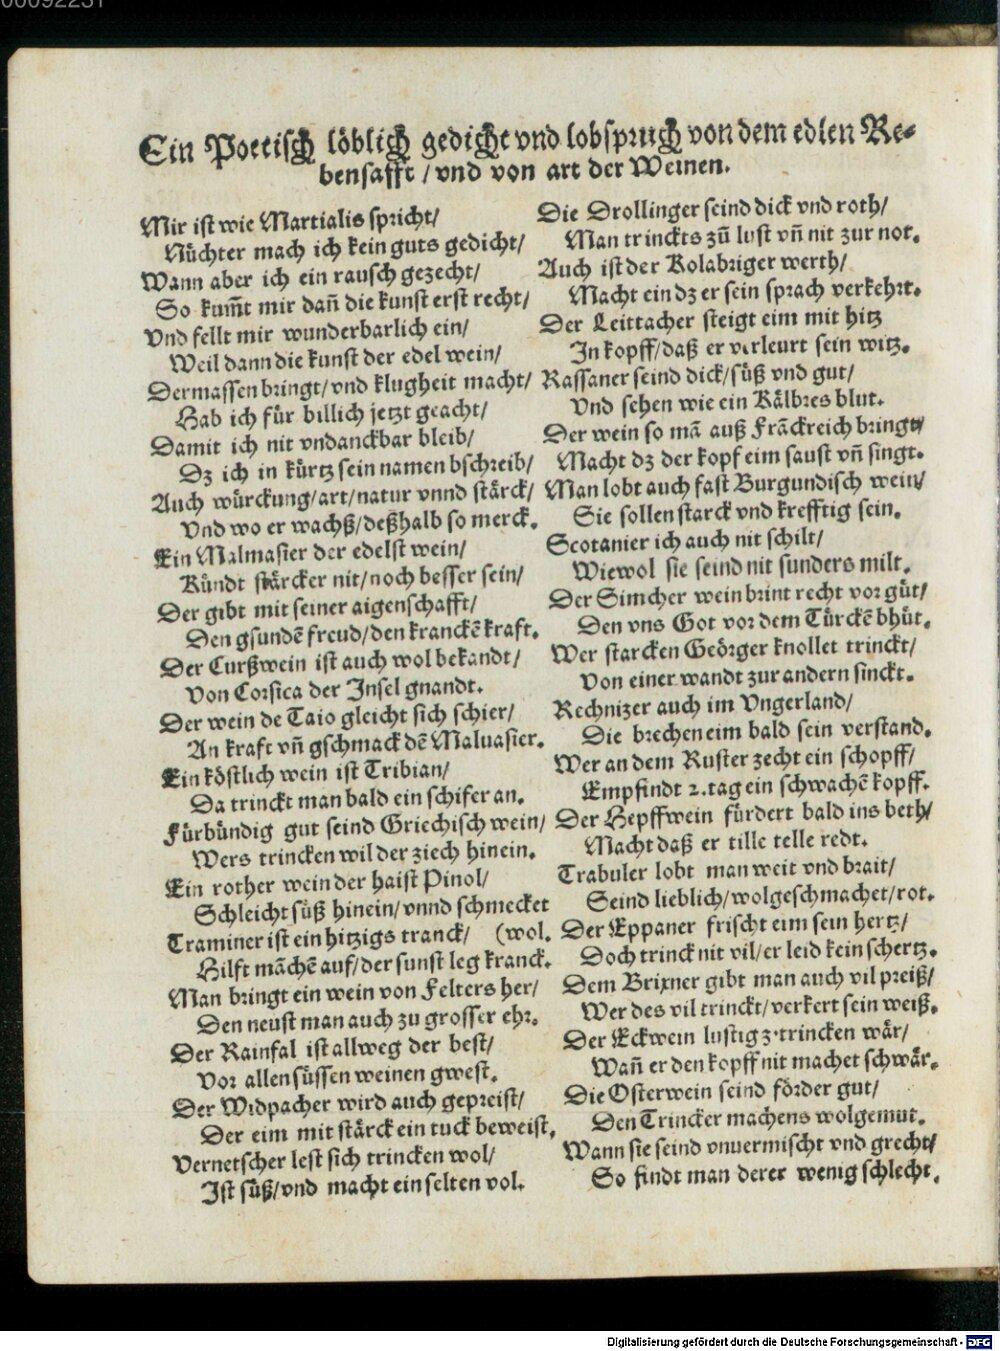 00092231
Ein Poetisch löblich gedicht vnd lobspruch von dem edlen Re-
bensafft / vnd von art der Weinen.
Mir ist wie Martialis spricht/
Nüchter mach ich kein guts gedicht/
Wann aber ich ein rausch gezecht/
So kum̃t mir dañ die kunst erst recht/
Vnd fellt mir wunderbarlich ein/
Weil dann die kunst der edel wein/
Dermassen bringt/ vnd klugheit macht/
Hab ich für billich jetzt geacht/
Damit ich nit vndanckbar bleib/
Dz ich in kürtz sein namen bschreib/
Auch würckung/ art/ natur vnnd stärck/
Vnd wo er wachß/ deßhalb so merck.
Ein Malmasier der edelst wein/
Kündt stärcker nit/ noch besser sein/
Der gibt mit seiner aigenschafft/
Den gsundẽ freud/ den kranckẽ kraft.
Der Curßwein ist auch wol bekandt/
Von Corsica der Insel gnandt.
Der wein de Taio gleicht sich schier/
An kraft vñ gschmack dẽ Maluasier.
Ein köstlich wein ist Tribian/
Da trinckt man bald ein schifer an.
Fürbündig gut seind Griechisch wein/
Wers trincken wil der ziech hinein.
Ein rother wein der haist Pinol/
Schleicht süß hinein/ vnnd schmecket
Traminer ist ein hitzigs tranck/ (wol.
Hilft mãchẽ auf/ der sunst leg kranck.
Man bringt ein wein von Felters her/
Den neust man auch zu grosser ehr.
Der Rainfal ist allweg der best/
Vor allen süssen weinen gwest.
Der Widpacher wird auch gepreist/
Der eim mit stärck ein tuck beweist.
Vernetscher lest sich trincken wol/
Ist süß/ vnd macht ein selten vol.
Die Drollinger seind dick vnd roth/
Man trinckts zů lust vñ nit zur not.
Auch ist der Kolabriger werth/
Macht ein dz er sein sprach verkehrt.
Der Leittacher steigt eim mit hitz
In kopff/ daß er verleurt sein witz.
Rassaner seind dick/ süß vnd gut/
Vnd sehen wie ein Kälbres blut.
Der wein so mã auß Frãckreich bringt/
Macht dz der kopf eim saust vñ singt.
Man lobt auch fast Burgundisch wein/
Sie sollen starck vnd krefftig sein.
Scotanier ich auch nit schilt/
Wiewol sie seind nit sunders milt.
Der Simcher wein brint recht vor gůt/
Den vns Got vor dem Türckẽ bhüt.
Wer starcken Geörger knollet trinckt/
Von einer wandt zur andern sinckt.
Rechnizer auch im Vngerland/
Die brechen eim bald sein verstand.
Wer an dem Ruster zecht ein schopff/
Empfindt 2. tag ein schwachẽ kopff.
Der Hepffwein fürdert bald ins beth/
Macht daß er tille telle redt.
Trabuler lobt man weit vnd brait/
Seind lieblich/ wolgeschmachet/ rot.
Der Eppaner frischt eim sein hertz/
Doch trinck nit vil/ er leid kein schertz.
Dem Brixner gibt man auch vil preiß/
Wer des vil trinckt/ verkert sein weiß.
Der Eckwein lustig z'trincken wär/
Wañ er den kopff nit machet schwär.
Die Osterwein seind förder gut/
Den Trincker machens wolgemut.
Wann sie seind vnuermischt vnd grecht/
So findt man derer wenig schlecht.
Digitalisierung gefördert durch die Deutsche Forschungsgemeinschaft - DFG